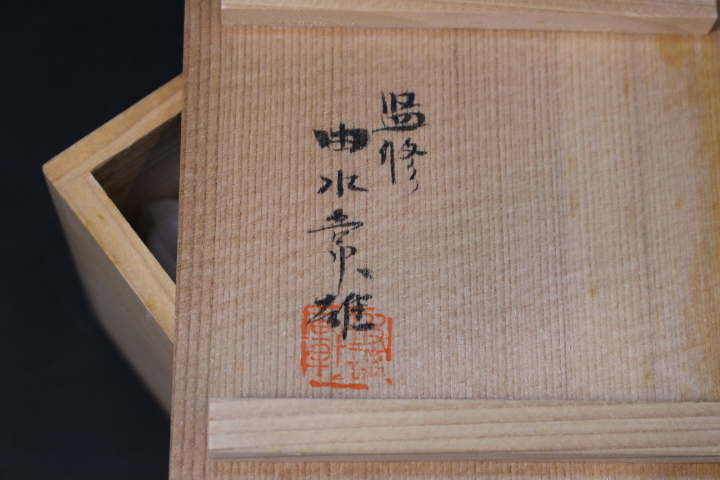 監修
由水常雄